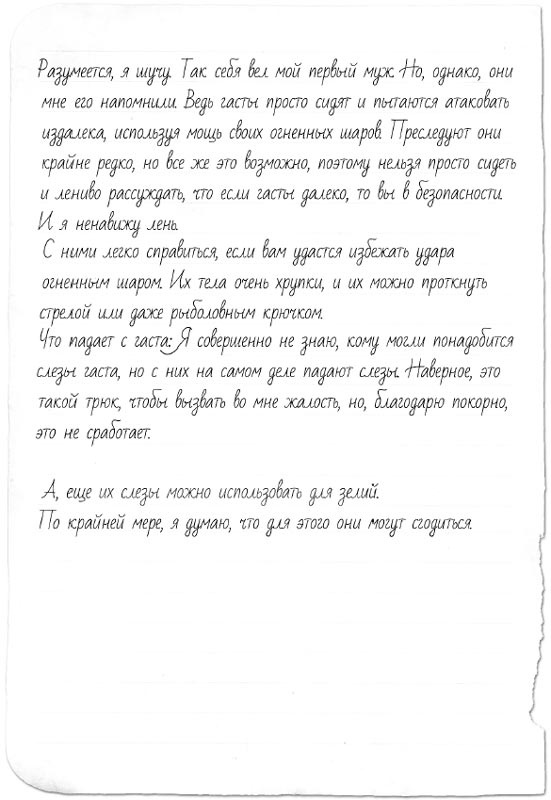 Разумеется, я шучу. Так себя вел мой первый муж. Но, однако, они
мне его напомнили. Ведь гасты просто сидят и пытаются атаковать
издалека, используя мощь своих огненных шаров. Преследуют они
крайне редко, но все же это возможно, поэтому нельзя просто сидеть
и лениво рассуждать, что если гасты далеко, то вы в безопасности.
И я ненавижу лень.
С ними легко справиться, если вам удастся избежать удара
огненным шаром. Их тела очень хрупки, и их можно проткнуть
стрелой или даже рыболовным крючком.
Что падает с гаста: Я совершенно не знаю, кому могли понадобится
слезы гаста, но с них на самом деле падают слезы. Наверное, это
такой трюк, чтобы вызвать во мне жалость, но, благодарю покорно,
это не сработает.
А, еще их слезы можно использовать для зелий.
По крайней мере, я думаю, что для этого они могут сгодиться.